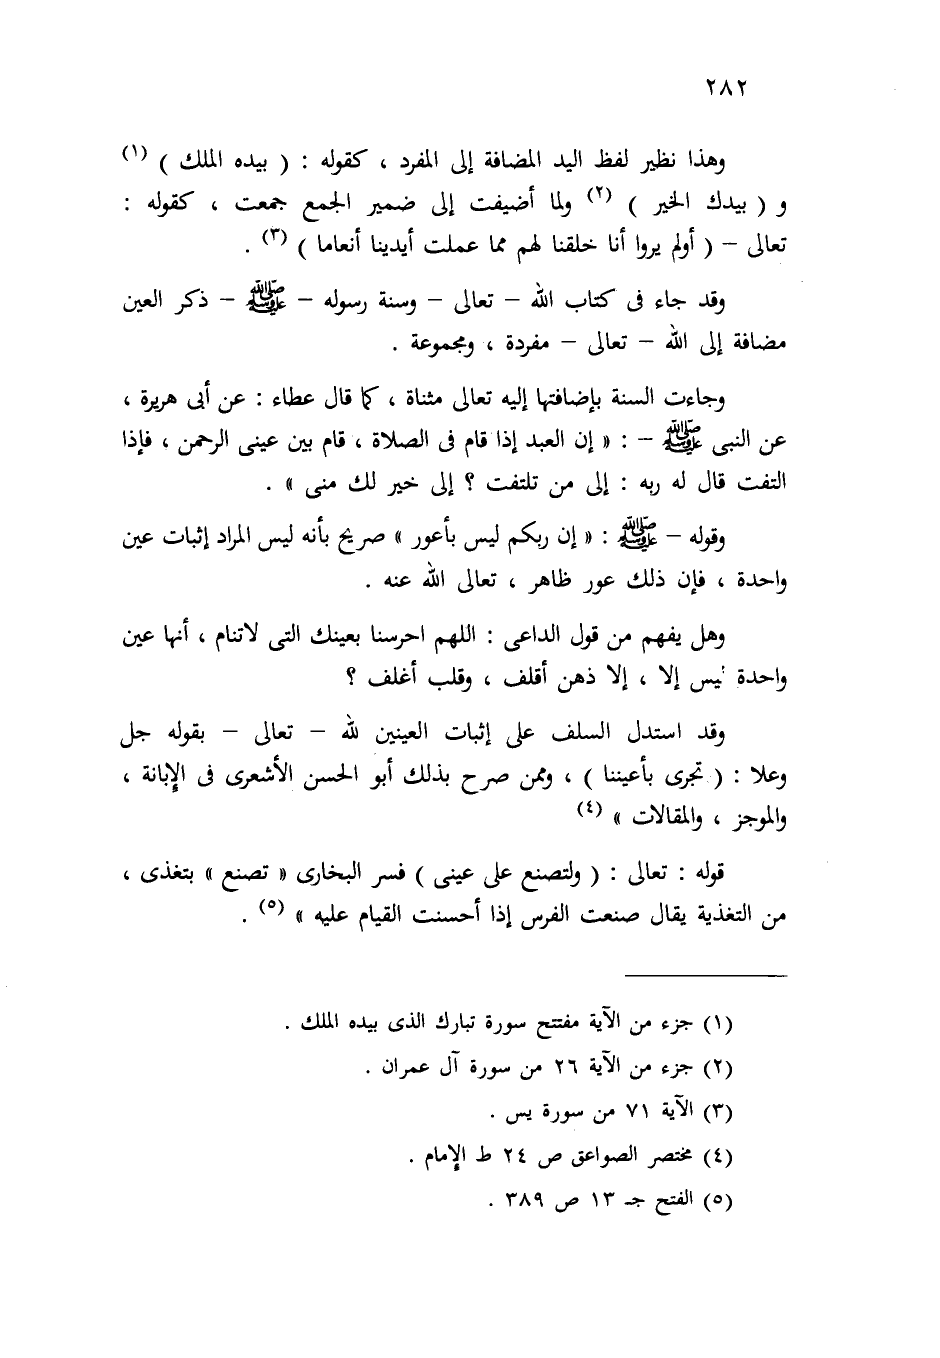 ٢٨٢
وهذا نظير لفظ اليد المضافة إلى المفرد ، كقوله : ( بيده الملك ) (١)
و ( بيدك الخير ) (٢) ولما أضيفت إلى ضمير الجمع جمعت ، كقوله :
تعالى – ( أولم يروا أنا خلقنا لهم مما عملت أيدينا أنعاما ) (٣) .
وقد جاء فى كتاب الله – تعالى – وسنة رسوله – ﷺ – ذكر العين
مضافة إلى الله – تعالى – مفردة ، ومجموعة .
وجاءت السنة بإضافتها إليه تعالى مثناة ، كما قال عطاء : عن أبى هريرة ،
عن النبى ﷺ – : « إن العبد إذا قام فى الصلاة ، قام بين عينى الرحمن ، فإذا
التفت قال له ربه : إلى من تلتفت ؟ إلى خير لك منى » .
وقوله – ﷺ : « إن ربكم ليس بأعور » صريح بأنه ليس المراد إثبات عين
واحدة ، فإن ذلك عور ظاهر ، تعالى الله عنه .
وهل يفهم من قول الداعى : اللهم احرسنا بعينك التى لاتنام ، أنها عين
واحدة ليس إلا ، إلا ذهن أقلف ، وقلب أغلف ؟
وقد استدل السلف على إثبات العينين لله – تعالى – بقوله جل
وعلا : ( تجرى بأعيننا ) ، وممن صرح بذلك أبو الحسن الأشعرى فى الإبانة ،
والموجز ، والمقالات » (٤)
قوله : تعالى : ( ولتصنع على عينى ) فسر البخارى « تصنع » بتغذى ،
من التغذية يقال صنعت الفرس إذا أحسنت القيام عليه » (٥) .
(١) جزء من الآية مفتتح سورة تبارك الذى بيده الملك .
(٢) جزء من الآية ٢٦ من سورة آل عمران .
(٣) الآية ٧١ من سورة يس .
(٤) مختصر الصواعق ص ٢٤ ط الإمام .
(٥) الفتح جـ ١٣ ص ٣٨٩ .